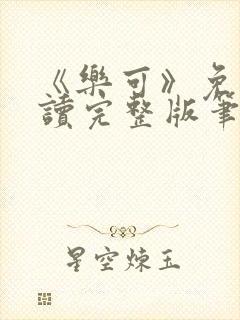 《樂可》免
讀完整版筆
星空煉玉